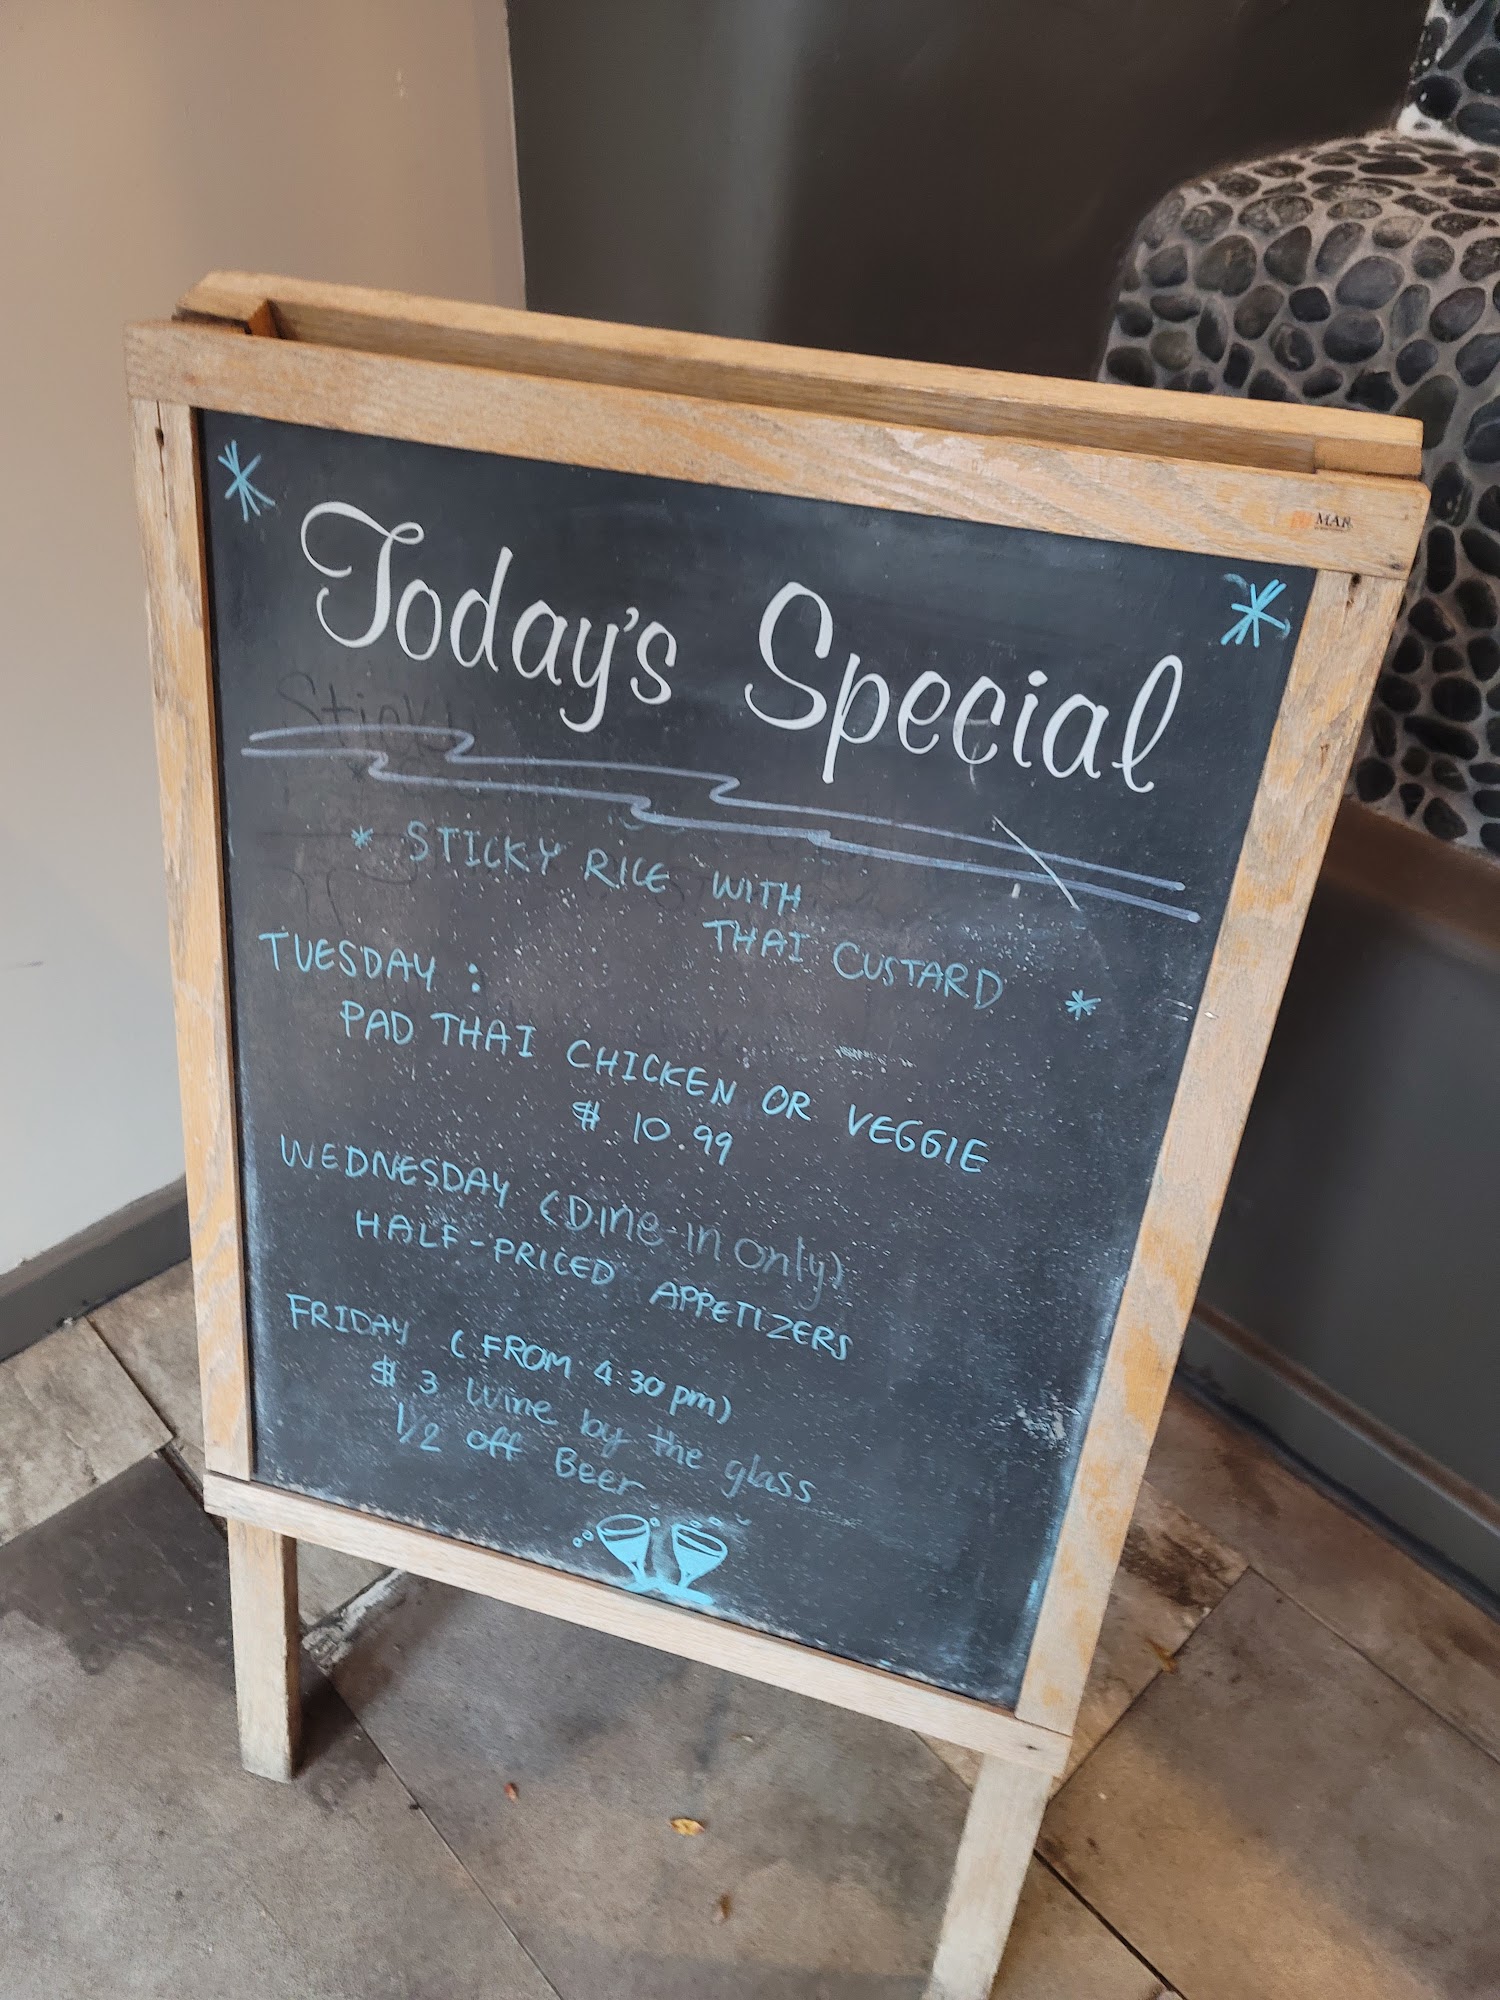 MAR
Today's Special
Sticky
* STICKY RICE WITH
THAI CUSTARD *
TUESDAY :
PAD THAI CHICKEN OR VEGGIE
$ 10.99
WEDNESDAY (Dine-in only)
HALF-PRICED APPETIZERS
FRIDAY ( FROM 4:30 pm)
$ 3 Wine by the glass
1/2 off Beer